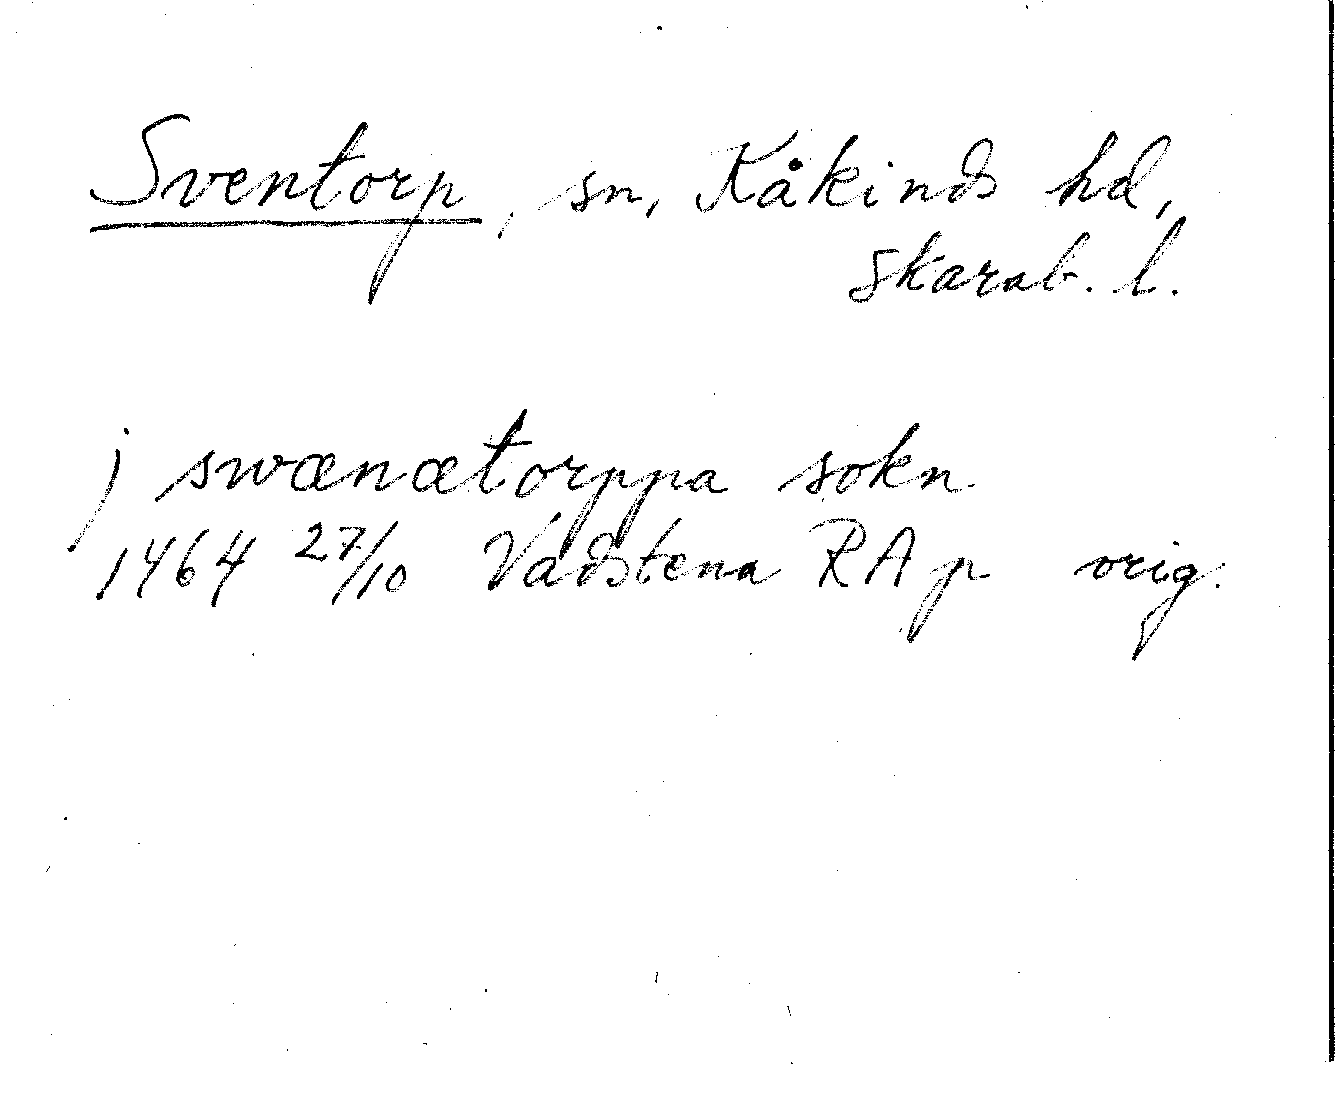 Sventorp, sn, Kåkinds hd,
Skarab. l.
j swænætorppa sokn
1464 27/10 Vadstena RAp orig.